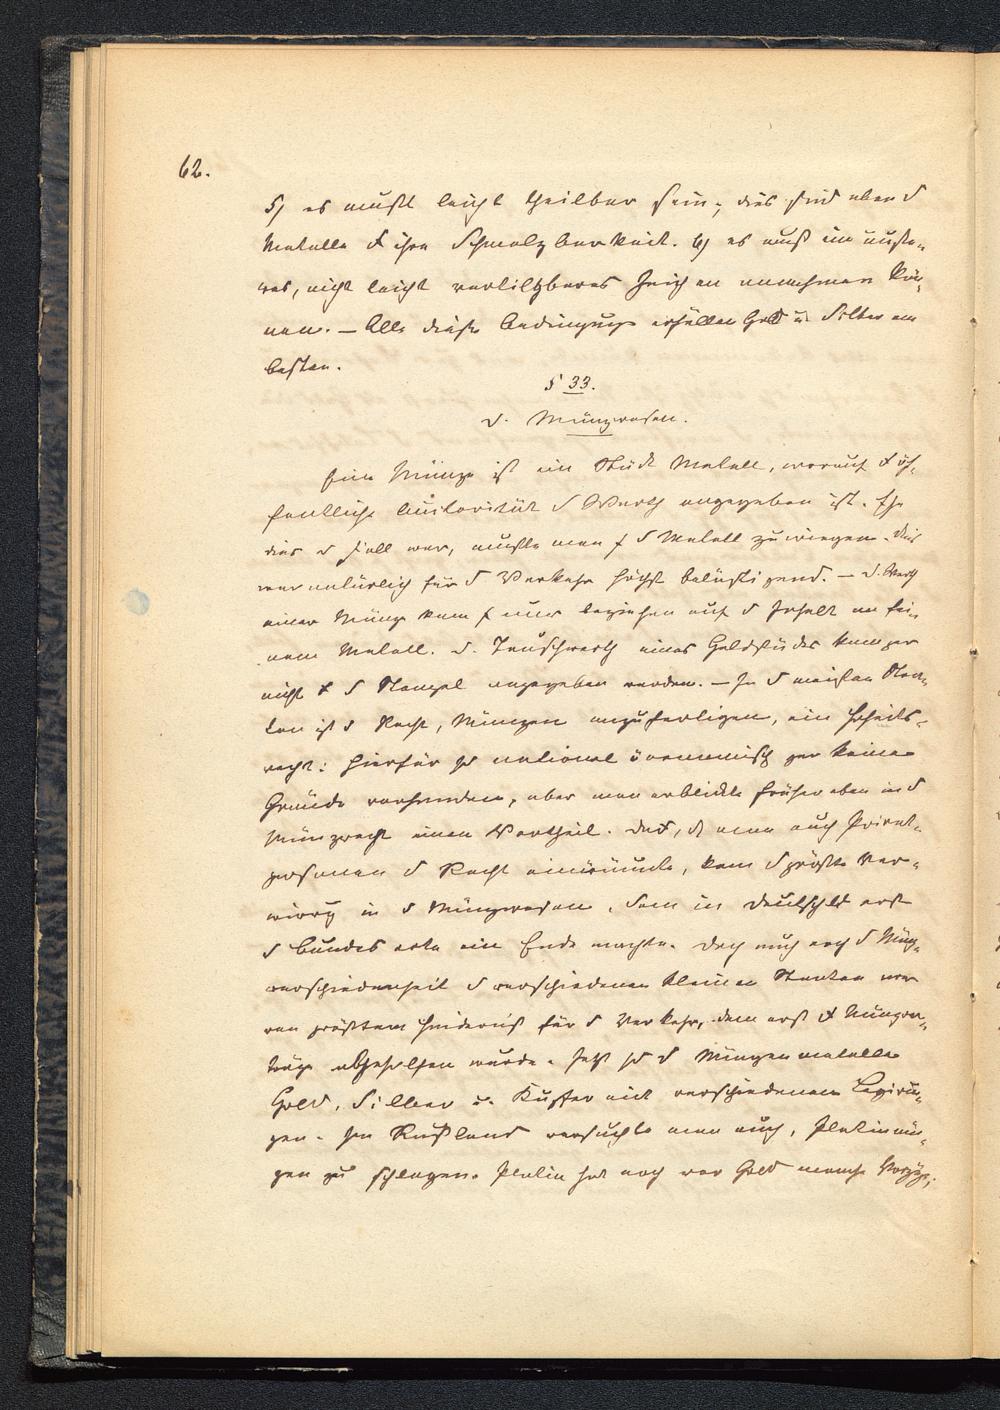 62.
5) es mußt leicht theilbar sein; dies sind eben d
Metalle d ihre Schmelzbarkeit. 6) es muß im äuße-
res, nicht leicht vertilgbares Zeichen annehmen kön-
nen. — Alle diese Bedingungen erfüllen Gold u. Silber am
besten.
§ 33.
D. Münzwesen.
Eine Münze ist ein Stück Metall, worauf d öf-
fentliche Autorität d Werth angegeben ist. Ehe
dies d Fall war, mußte man s d Metall zuwiegen. Dies
war natürlich für d Verkehr höchst belästigend. — D. Werth
einer Münze kann s nur beziehen auf d Gehalt an fei-
nem Metall. D. Tauschwerth eines Geldstückes kann gar
nicht d d Stempel angegeben werden. — In d meisten Staa-
ten ist d Recht, Münzen anzufertigen, ein Hoheits-
recht: hierfür sd national öconomisch gar keine
Gründe vorhanden, aber man erblickte früher eben in d
Münzrecht einen Vortheil. Dad, dß man auch Privat-
personen d Recht einräumte, kam d größte Ver-
wirrg in d Münzwesen, dem in Deutschld erst
d Bundes acte ein Ende machte. Doch auch noch d Münz-
verschiedenheit d verschiedenen kleinen Staaten war
von größtem Hinderniß für d Verkehr, dem erst d Münzver-
träge abgeholfen wurde. Jetzt sd d Münzenmetalle
Gold, Silber u. Kupfer mit verschiedenen Legirun-
gen. In Rußland versuchte man auch, Platinmün-
zen zu schlagen. Platin hat noch vor Gold manche Vorzüge;